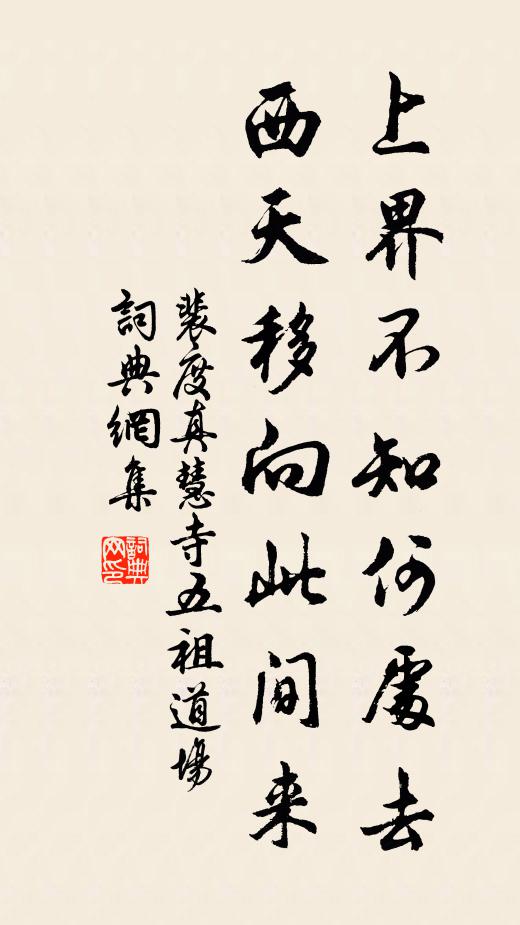 上界不知何處去
西天移向此間来
裴度真慧寺五祖道場
詞典網集
詞典网印